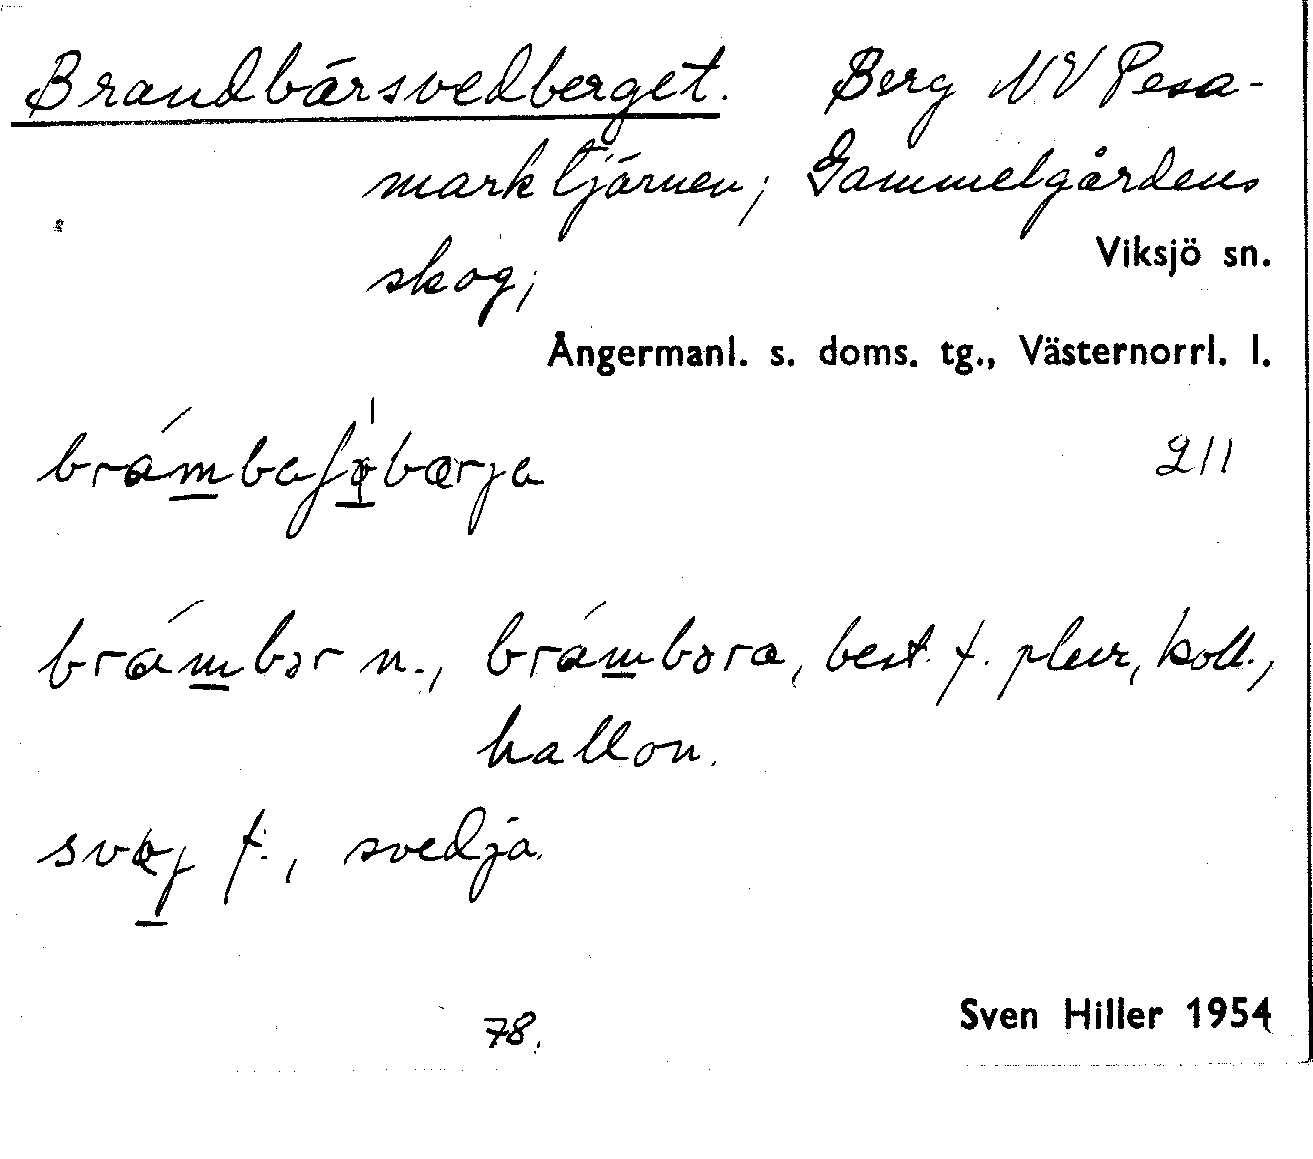 Brandbärsvedberget. Berg NV Pesa-
marktjärnen; Gammelgårdens
skog;
Viksjö sn.
Ångermanl. s. doms. tg., Västernorrl. l.
211
brámbər n., brámbəra, best. f. plur, koll.,
hallon.
svæj f., svedja.
78.
Sven Hiller 1954